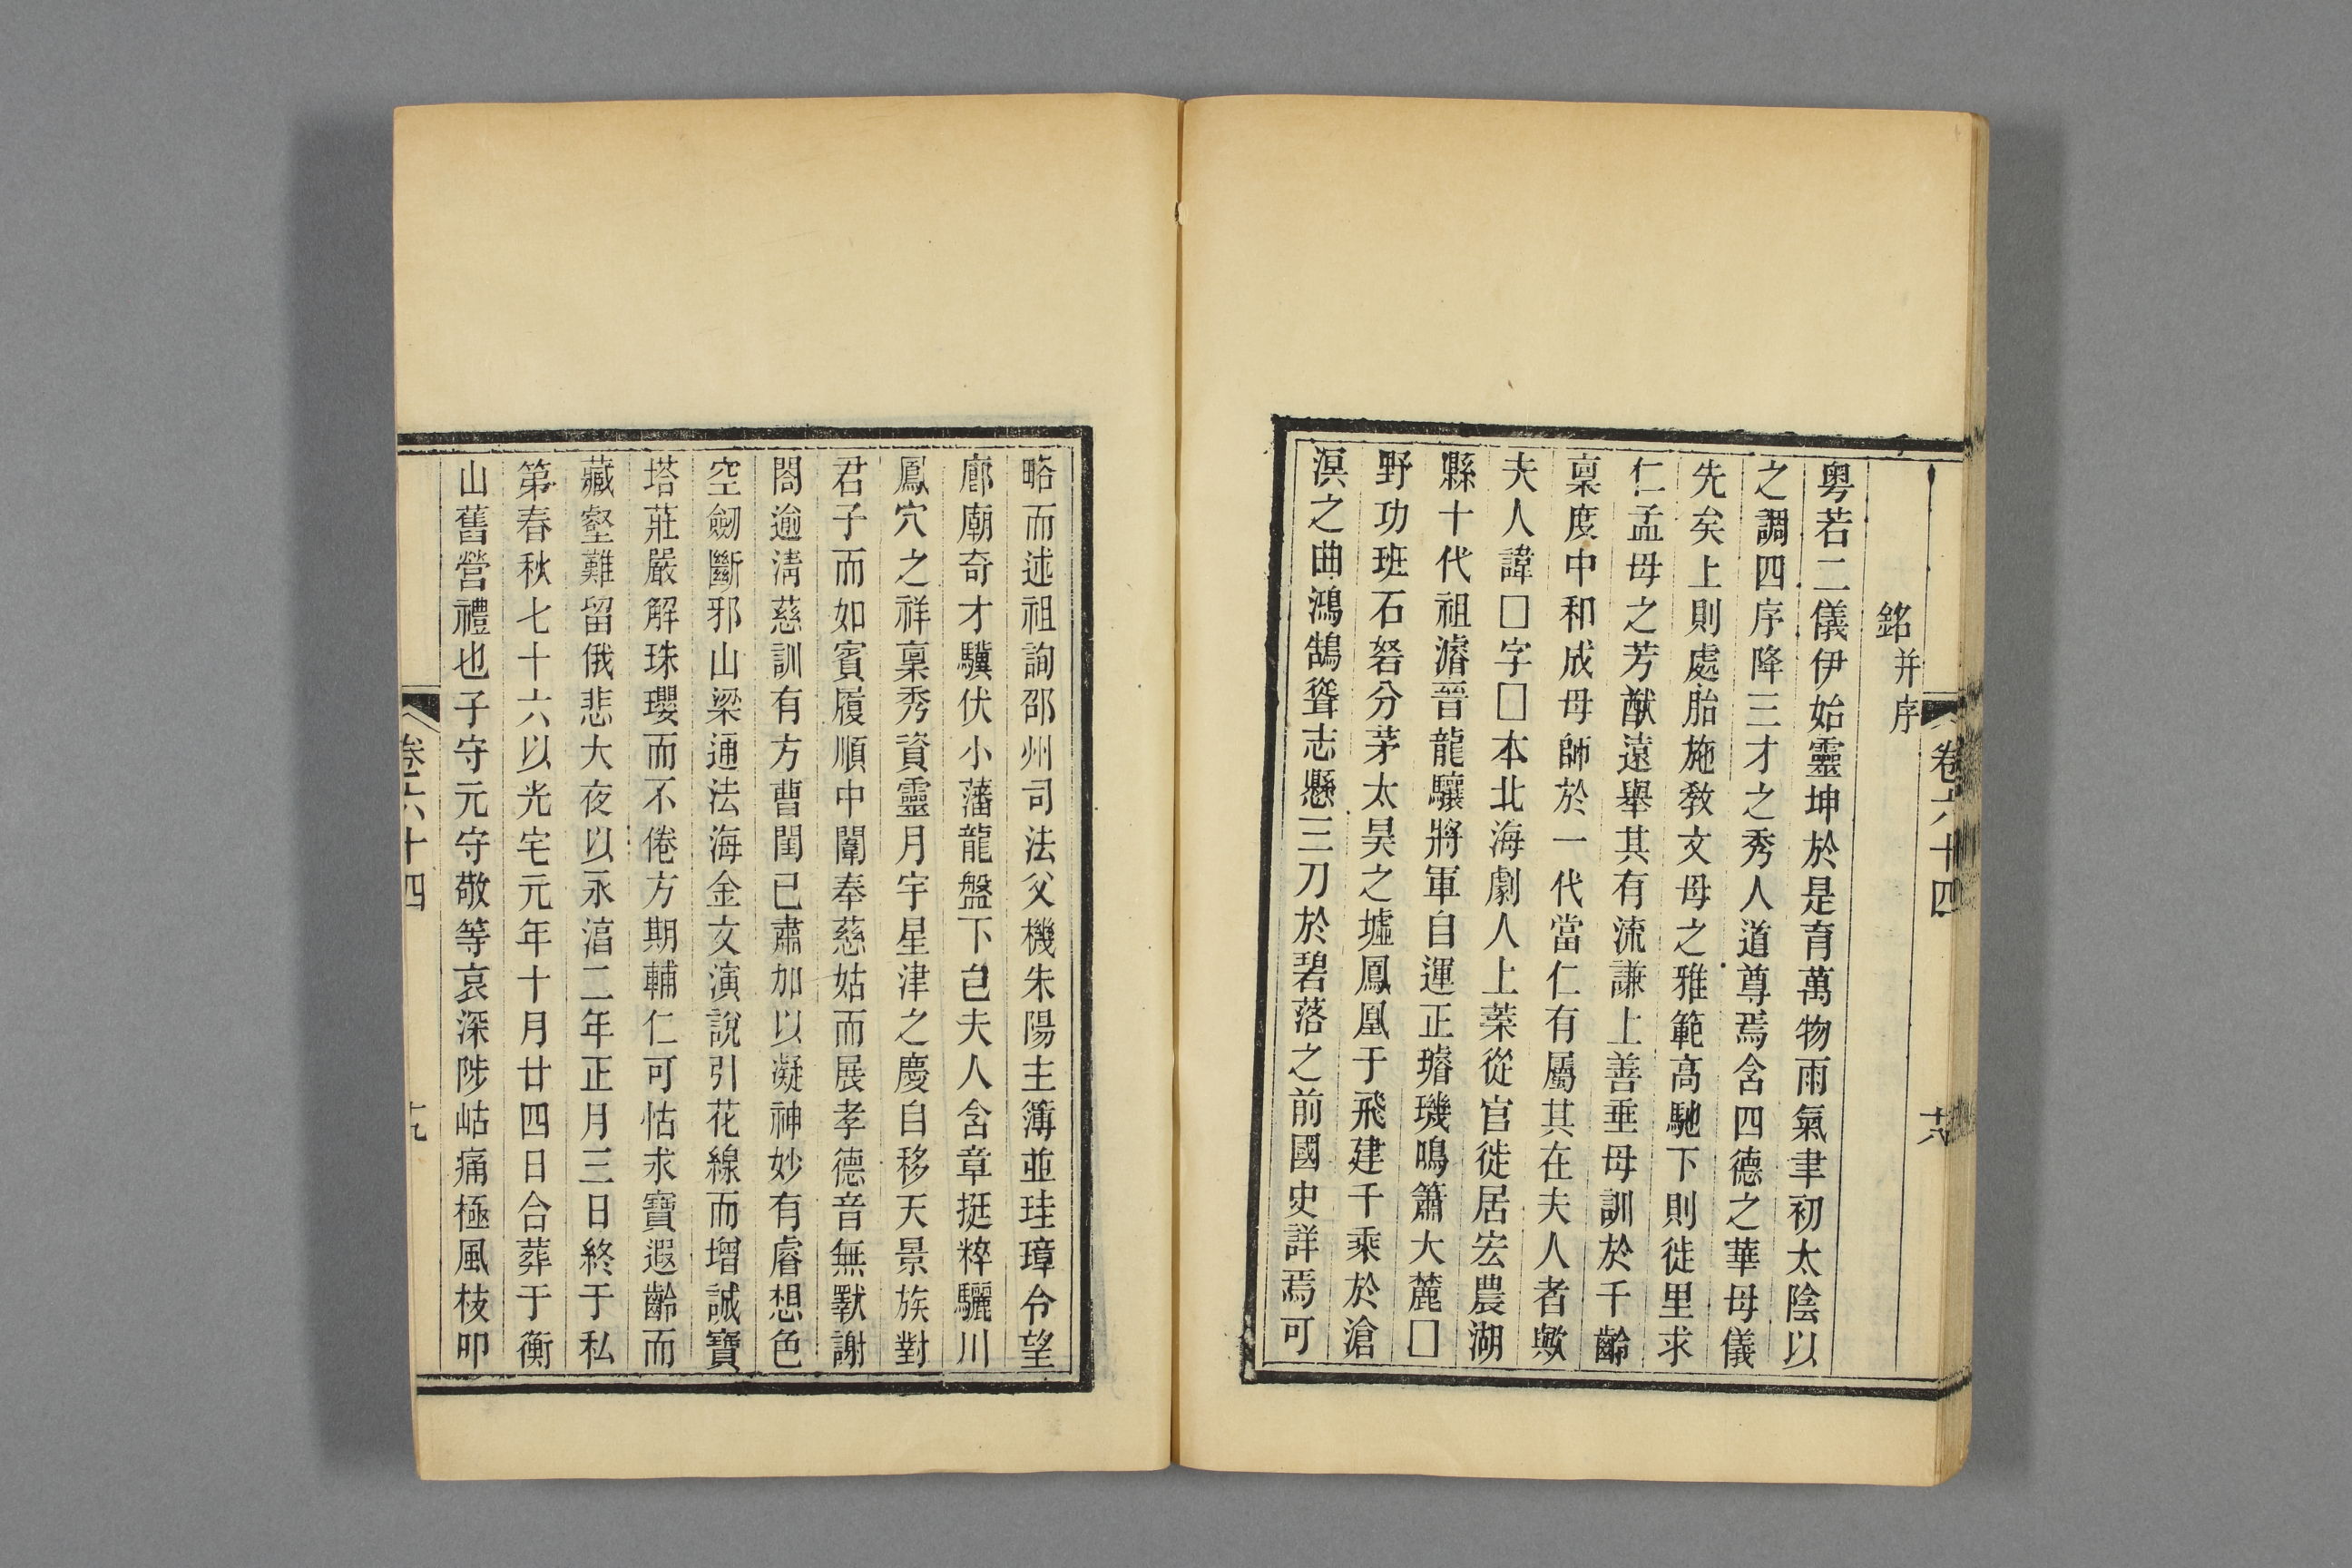 卷六十四
十八
銘并序
粵若二儀伊始靈坤於是育萬物雨氣聿初太陰以
之調四序降三才之秀人道尊焉含四德之華母儀
先矣上則處胎施敎文母之雅範高馳下則徙里求
仁孟母之芳猷遠舉其有流謙上善垂母訓於千齡
稟度中和成母師於一代當仁有屬其在夫人者歟
夫人諱□字□本北海劇人上葉從官徙居宏農湖
縣十代祖濬晉龍驤將軍自運正璿璣鳴簫大麓□
野功班石砮分茅太昊之墟鳳凰于飛建千乘於滄
溟之曲鴻鵠聳志懸三刀於碧落之前國史詳焉可
略而述祖詢邵州司法父機朱陽主簿並珪璋令望
廊廟奇才驥伏小藩龍盤下邑夫人含章挺粹驪川
鳳穴之祥稟秀資靈月宇星津之慶自移天景族對
君子而如賓履順中闈奉慈姑而展孝德音無斁謝
閤逾清慈訓有方曹閨已肅加以凝神妙有睿想色
空劒斷邪山梁通法海金文演說引花線而增誠寶
塔莊嚴解珠瓔而不倦方期輔仁可怙求寶遐齡而
藏壑難留俄悲大夜以永湻二年正月三日終于私
第春秋七十六以光宅元年十月廿四日合葬于衡
山舊營禮也子守元守敬等哀深陟岵痛極風枝叩
卷六十四
十九